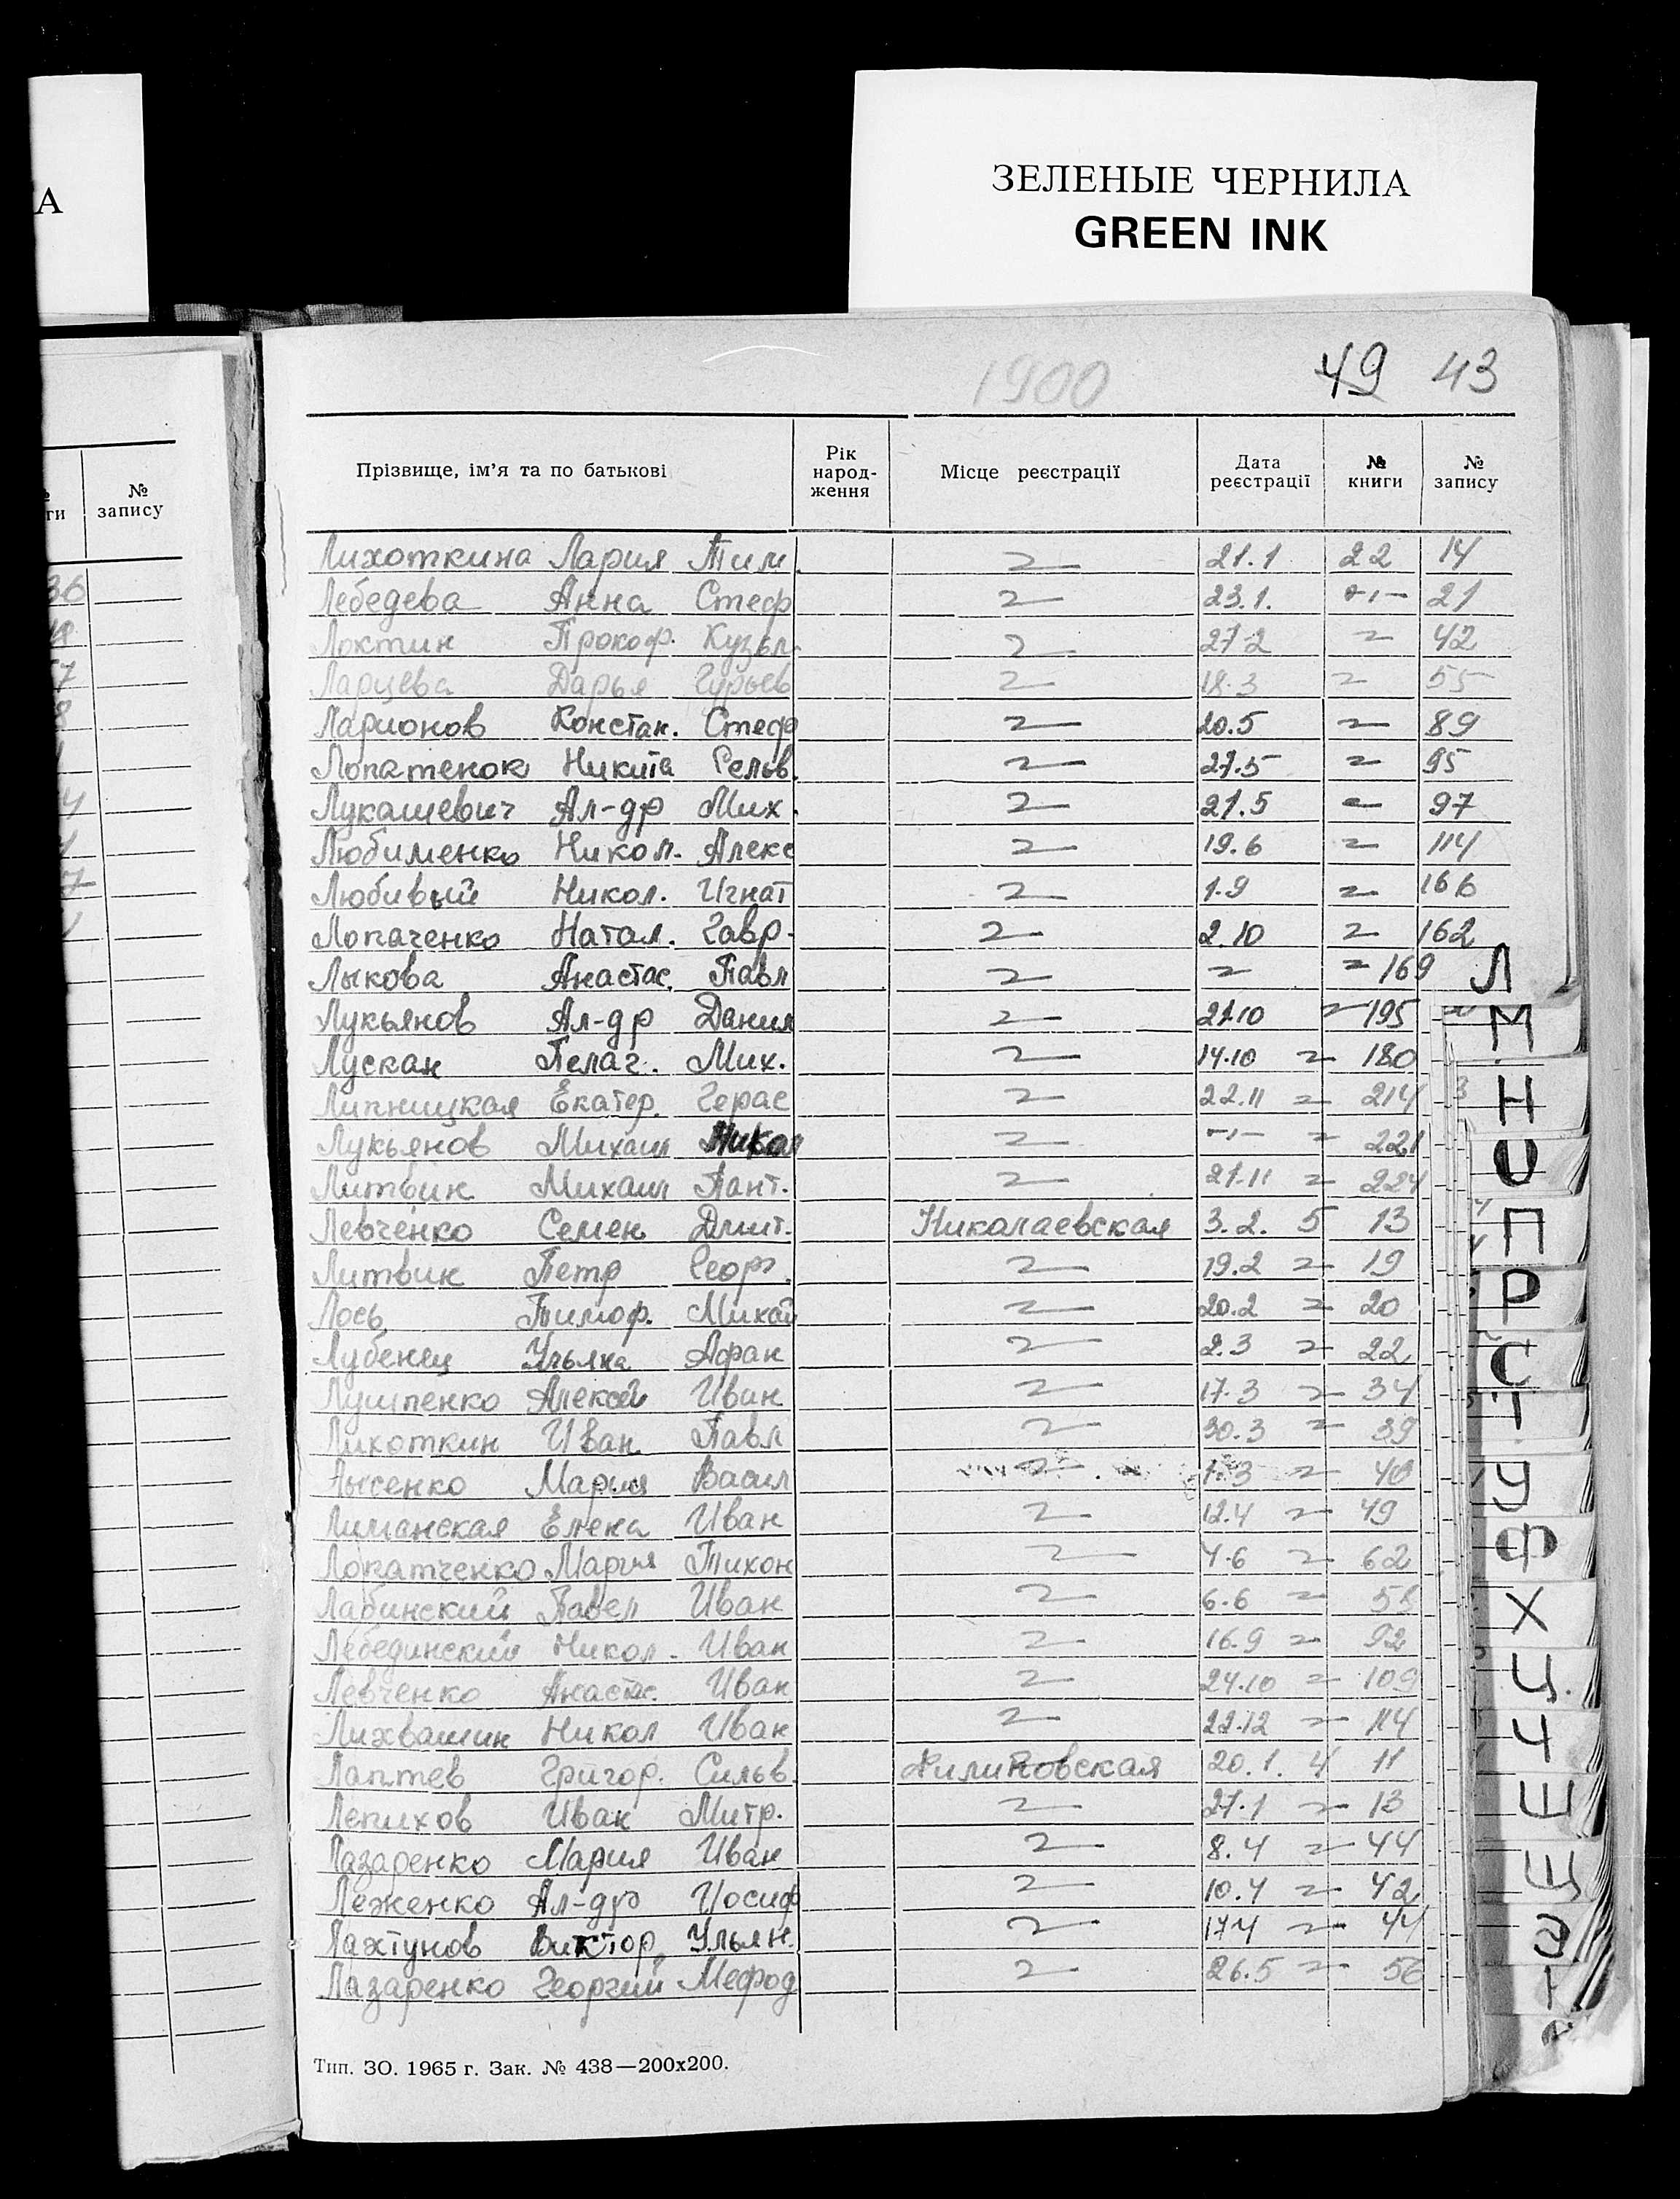 А
ЗЕЛЕНЫЕ ЧЕРНИЛА
GREEN INK
1900 49 43
Прізвище, ім’я та по батькові Рік народ-ження Місце реєстрації Дата реєстрації № книги № запису
№ запису
Лихоткина Лария Тим. 21.1 22 14
Лебедева Анна Стеф 23.1. -"- 21
Локтин Прокоф. Кузьм. 27.2 42
Ларцева Дарья Гурьев 18.3 55
Ларионов Констан. Стеф 20.5 89
Лопатенок Никита Сельв. 27.5 95
Лукашевич Ал-др Мих. 21.5 97
Любименко Никол. Алекс 19.6 114
Любивый Никол. Игнат 1.9 166
Лопаченко Натал. Гавр. 2.10 162
Лыкова Анастас. Павл 169
Лукьянов Ал-др Данил 21.10 195
Лускан Пелаг. Мих. 14.10 180
Липницкая Екатер. Герас 22.11 214
Лукьянов Михаил Никол -"- 221
Литвин Михаил Пант. 21.11 224
Левченко Семен Дмит. Николаевская 3.2. 5 13
Литвин Петр Георг. 19.2 19
Лось Тимоф. Михай 20.2 20
Лубенец Ульяна Афан 2.3 22
Лушпенко Алексей Иван 17.3 34
Лихоткин Иван Павл 30.3 39
Лысенко Мария Васил 1.3 40
Лиманская Елена Иван 12.4 49
Лопатченко Мария Тихон 4.6 62
Лабинский Павел Иван 6.6 58
Лебединский Никол. Иван 16.9 92
Левченко Анастас. Иван 24.10 109
Лихвашин Никол Иван 22.12 114
Лаптев Григор. Сильв. Филиповская 20.1. 4 11
Лепихов Иван Митр. 27.1 13
Лазаренко Мария Иван 8.4 44
Леженко Ал-др Иосиф 10.4 42
Лахтунов Виктор Ульян. 17.4 44
Лазаренко Георгий Мефод 26.5 56
Л
М
Н
О
П
Р
С
Т
У
Ф
Х
Ц
Ч
Ш
Щ
Э
Тип. ЗО. 1965 г. Зак. № 438—200х200.